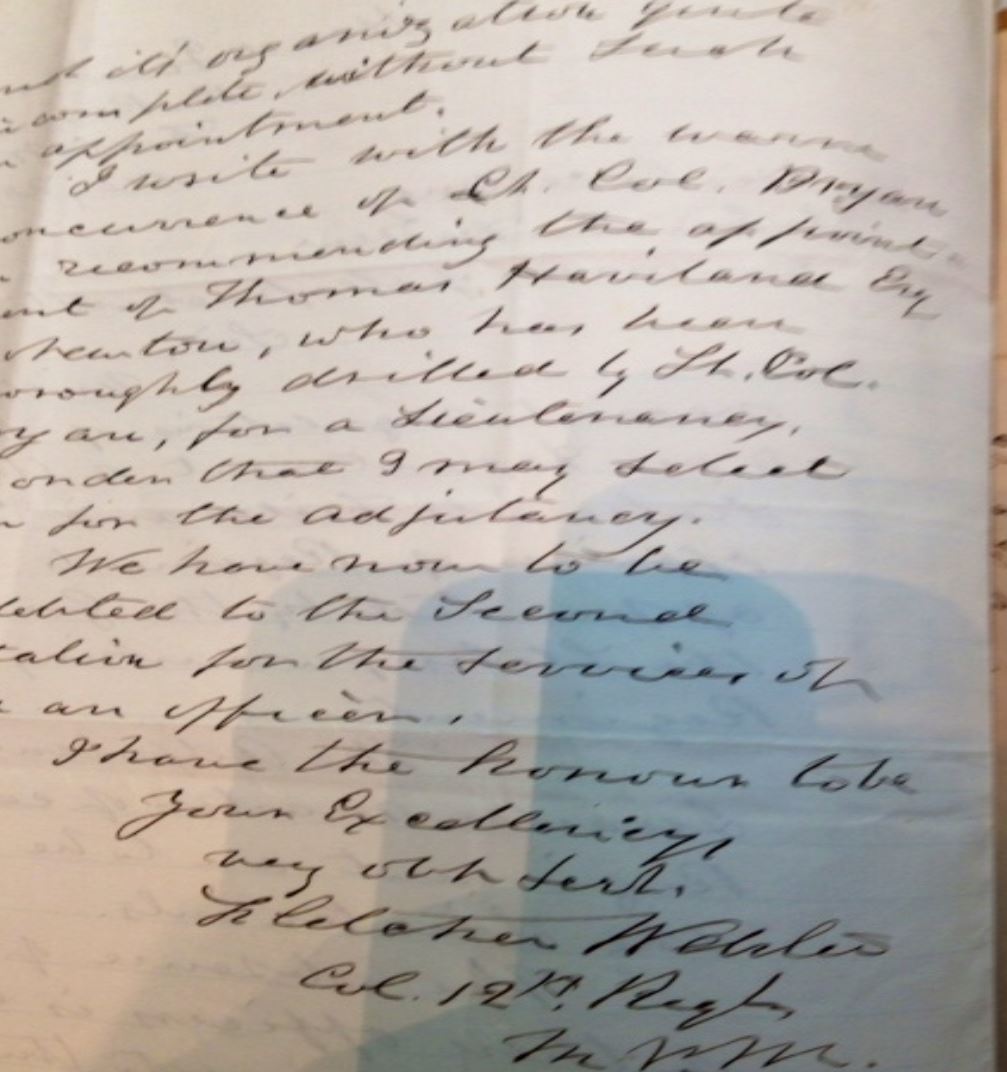 its organization quite
complete, without such
appointment.
I write with the warm
oncurrence of Lt. Col. Bryan
recommending the appoint-
ent of Thomas Haviland Esq
Newton, who has been
oroughly drilled by Lt. Col.
yan, for a Lieutenancy,
order that I may select
for the adjutancy.
We have now to be
debted to the Second
talion for the services of
an officer.
I have the honour to be
Your Excellency,
very obt servt.
Fletcher Webster
Col. 12th. Regt.
M.V.M.